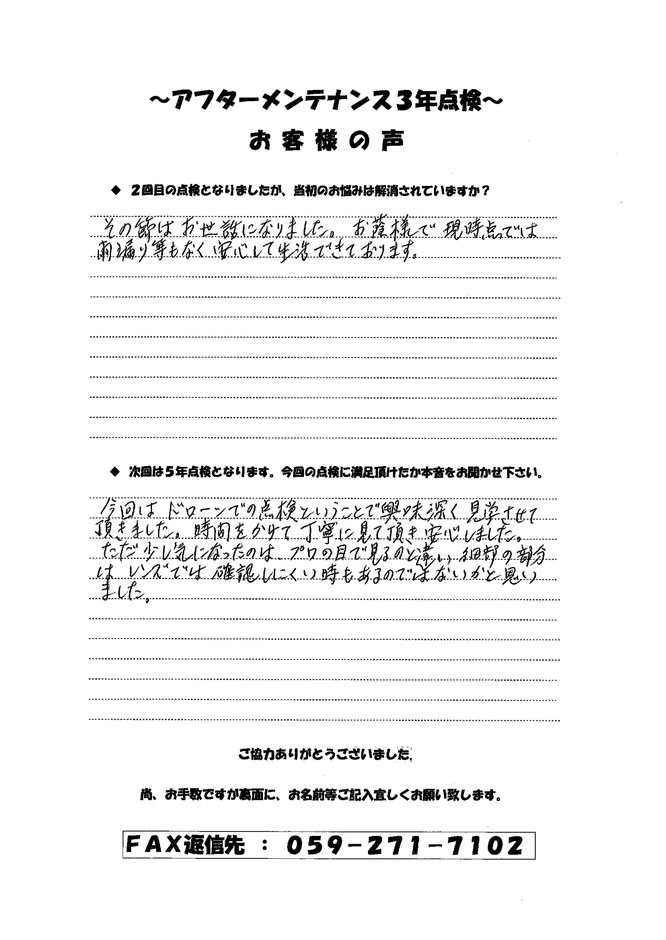 ～アフターメンテナンス３年点検～
お客様の声
◆ ２回目の点検となりましたが、当初のお悩みは解消されていますか？
その節はお世話になりました。お蔭様で現時点では
雨漏り等もなく安心して生活できております。
◆ 次回は５年点検となります。今回の点検に満足頂けたか本音をお聞かせ下さい。
今回はドローンでの点検ということで興味深く見学させて
頂きました。時間をかけて丁寧に見て頂き安心しました。
ただ少し気になったのは、プロの目で見るのと違い、細部の部分
はレンズでは確認しにくい時もあるのではないかと思い
ました。
ご協力ありがとうございました。
尚、お手数ですが裏面に、お名前等ご記入宜しくお願い致します。
ＦＡＸ返信先 ： ０５９－２７１－７１０２